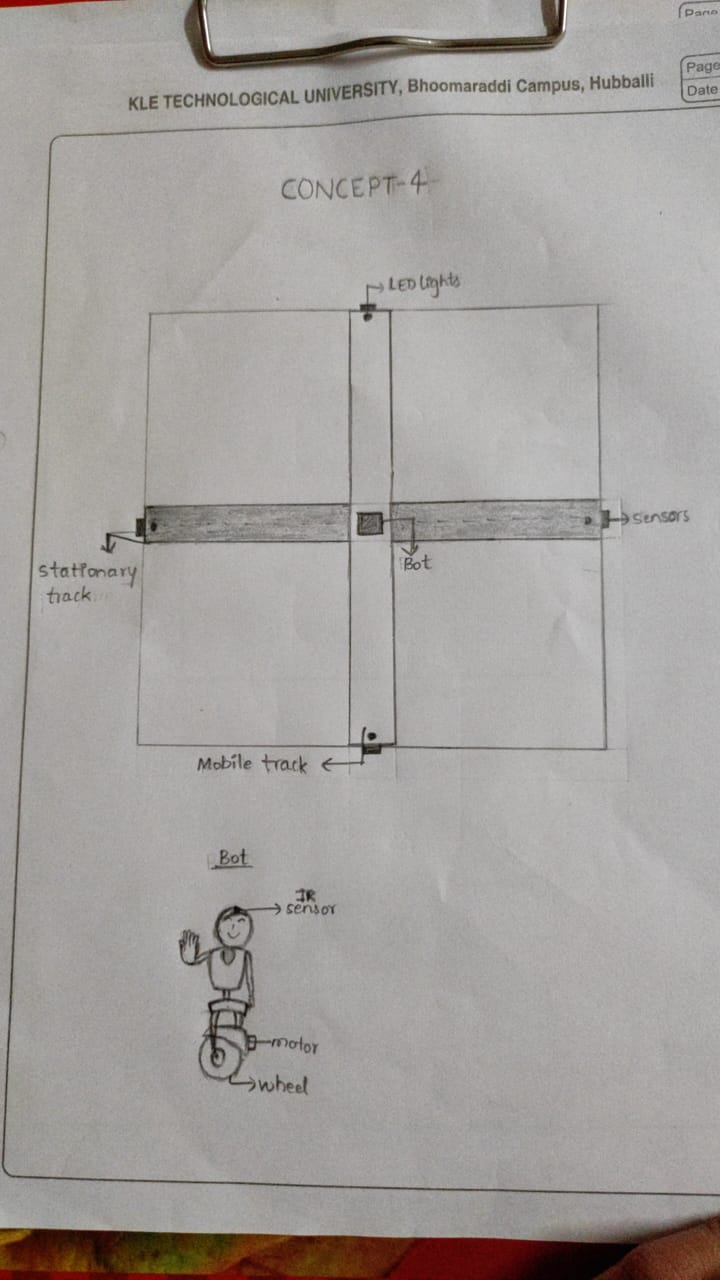 Page
KLE TECHNOLOGICAL UNIVERSITY, Bhoomaraddi Campus, Hubballi
Page
Date
CONCEPT-4
LED lights
sensors
Bot
stationary
track
Mobile track
Bot
IR
sensor
motor
wheel